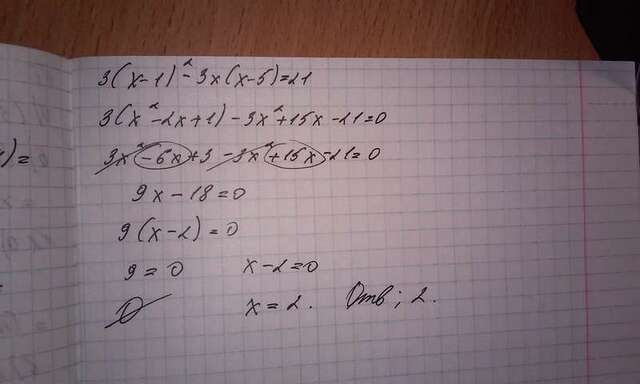 3(x-1)²-3x(x-5)=21
3(x²-2x+1)-3x²+15x-21=0
3x²-6x+3-3x²+15x-21=0
9x-18=0
9(x-2)=0
9=0 x-2=0
∅ x=2. Отв; 2.